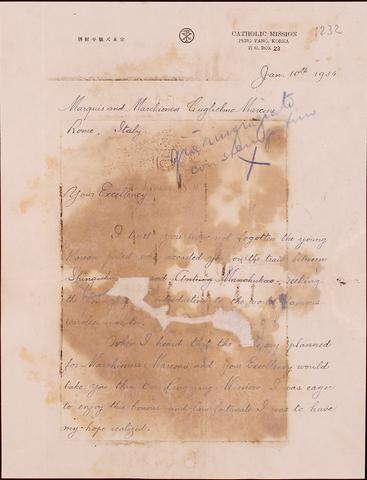 CATHOLIC MISSION
PENG YANG, KOREA
P. O. BOX 23
1232
Jan. 10th 1934
Marquis and Marchioness Guglielmo Marconi
Rome, Italy
già ringraziato
X
Your Excellency:
I trust you have not forgotten the young
Korean priest who accosted you on the train between
and Antung Manchukuo, seeking
the introduction to the world famous
wireless
When I heard that the planned
for Marchioness Marconi and Your Excellency would
take you thru Peng yang Mission I was eager
to enjoy this honor and how fortunate I was to have
my hope realized.